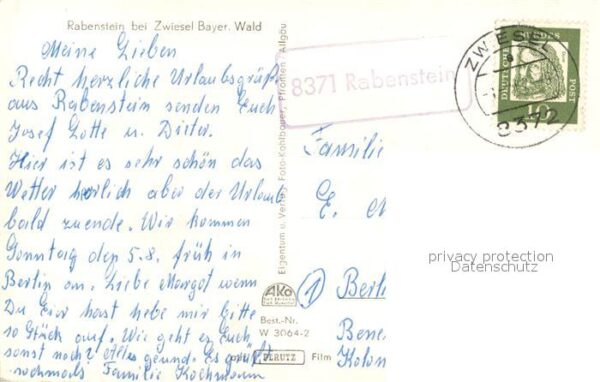 Rabenstein bei Zwiesel Bayer. Wald
Meine Lieben
Recht herzliche Urlaubsgrüße
aus Rabenstein senden Euch
Josef Lotte u. Dieter.
Hier ist es sehr schön das
Wetter herrlich aber der Urlaub
bald zuende. Wir kommen
Sonntag den 5.8. früh in
Berlin an. Liebe Margot wenn
Du Eier hast hebe mir bitte
10 Stück auf. Wie geht es Euch
sonst noch? Alles gesund. Es grüßt
nochmals Familie
Eigentum u. Verlag Foto-Kohlbauer, Pfronten Allgäu
AKO
Best.-Nr.
W 3064-2
PERUTZ Film
8371 Rabenstein
ZWIESEL
8372
DEUTSCHE BUNDESPOST
10
Familie
E. M
1 Berli
Bene
Kolon
privacy protection
Datenschutz